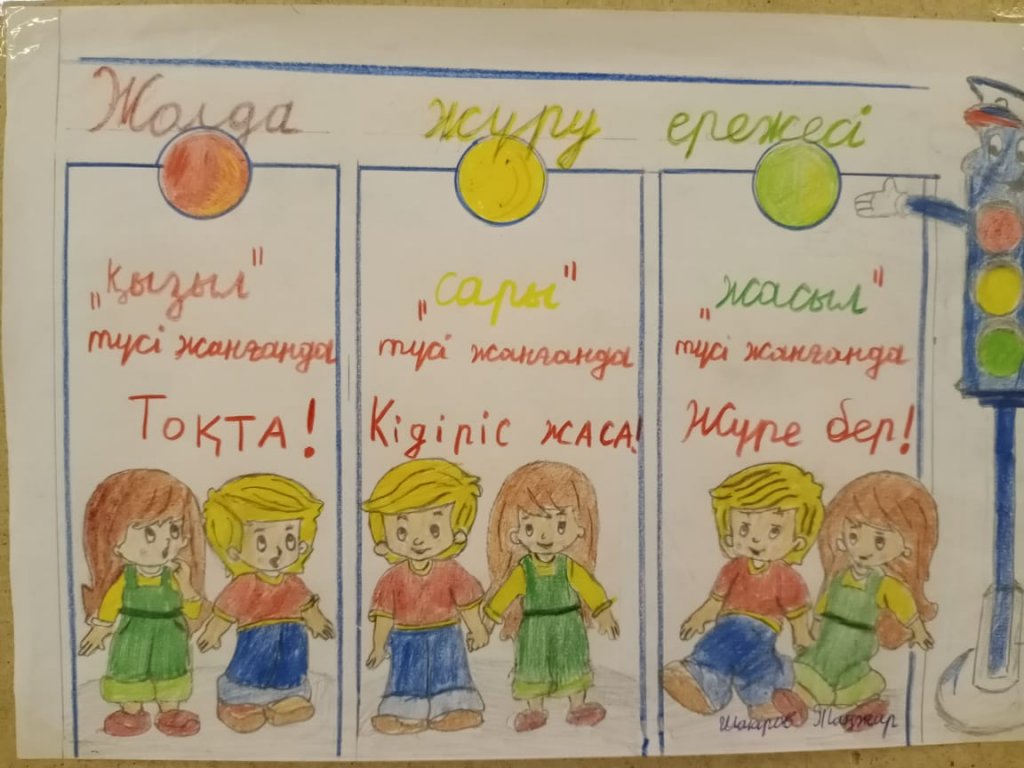 Жолда жүру ережесі
„қызыл"
түсі жанғанда
ТОҚТА!
„сары"
түсі жанғанда
Кідіріс ЖАСА!
„жасыл"
түсі жанғанда
Жүре бер!